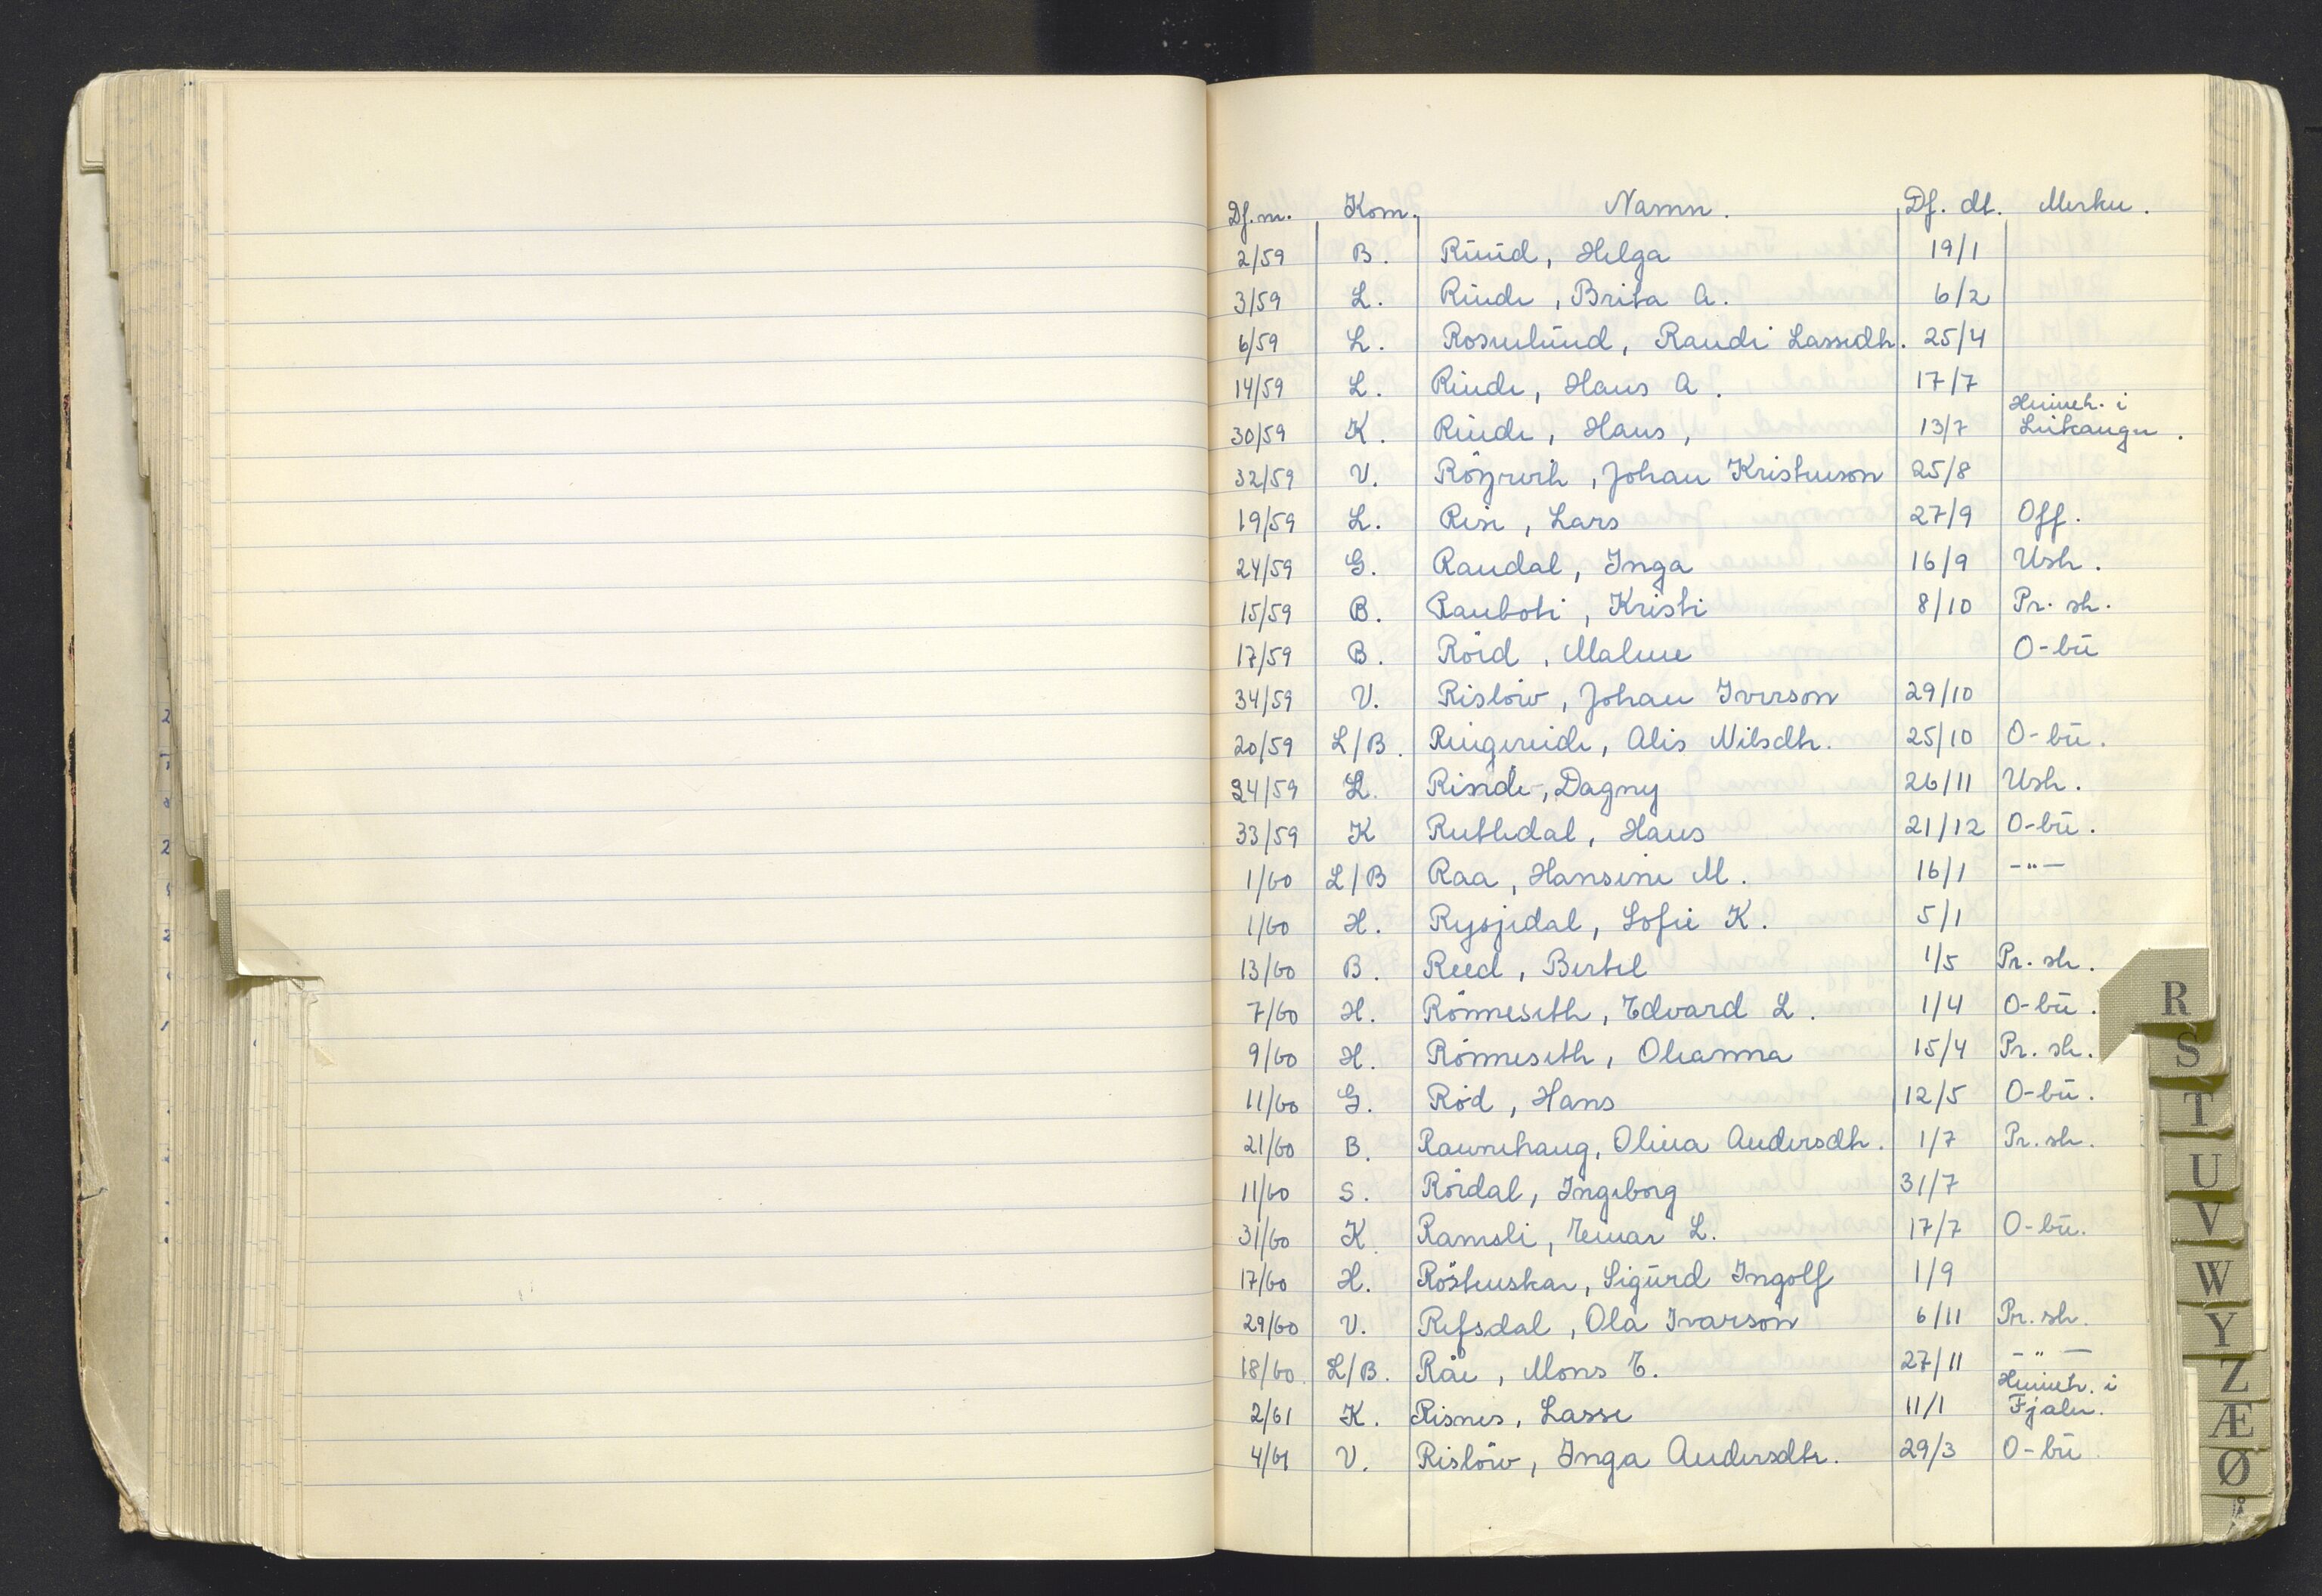 Df. nr. Kom. Namn. Df. dt. Merkn.
2/59 B. Ruud, Helga 19/1
3/59 L. Rinde, Brita A. 6/2
6/59 L. Rosenlund, Randi Lassedtr. 25/4
14/59 L. Rinde, Hans A. 17/7
Heimeh. i
30/59 K. Rinde, Hans, 13/7 Leikanger.
32/59 V. Röyrvik, Johan Kristenson 25/8
19/59 L. Rise, Lars 27/9 Off.
24/59 G. Randal, Inga 16/9 Ush.
15/59 B. Rauboti, Kristi 8/10 Pr. sk.
17/59 B. Röid, Malene O-bu
34/59 V. Rislöw, Johan Iverson 29/10
20/59 L/B. Ringereide, Alis Nilsdtr. 25/10 O-bu.
24/59 L. Rinde, Dagny 26/11 Ush.
33/59 K Rutledal, Hans 21/12 O-bu.
1/60 L/B Raa, Hansine M. 16/1 -"-
1/60 H. Rysjedal, Sofie K. 5/1
13/60 B. Reed, Bertel 1/5 Pr. sk.
7/60 H. Rönneseth, Edvard L. 1/4 O-bu.
9/60 H. Rönneseth, Oleanna 15/4 Pr. sk.
11/60 G. Röd, Hans 12/5 O-bu.
21/60 B. Ravnehaug, Olina Andersdtr. 1/7 Pr. sk.
11/60 S. Röidal, Ingeborg 31/7
31/60 K. Ramsli, Einar L. 17/7 O-bu.
17/60 H. Röstenskar, Sigurd Ingolf 1/9
29/60 V. Refsdal, Ola Ivarson 6/11 Pr. sk.
18/60 L/B. Råe, Mons E. 27/11 -"-
Heimeh. i
2/61 K. Risnes, Lasse 11/1 Fjaler.
4/61 V. Rislöw, Inga Andersdtr. 29/3 O-bu
R
S
T
U
V
W
Y
Z
Æ
Ø
Å